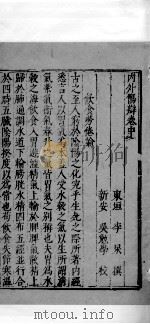 內外傷辯卷上
東垣 李杲 撰
新安 吳勉學 校
飲食勞倦論
古之至人窮於陰陽之化究乎生死之際所著內經
悉言人以胃氣為本蓋人受水穀之氣以生所謂清
氣榮氣衛氣春升之氣皆胃氣之別稱也夫胃為水
穀之海飲食入胃遊溢精氣上輸於脾脾氣散精上
歸於肺通調水道下輸膀胱水精四布五經並行合
於四時五臟陰陽揆度以為常也若飲食失節寒溫